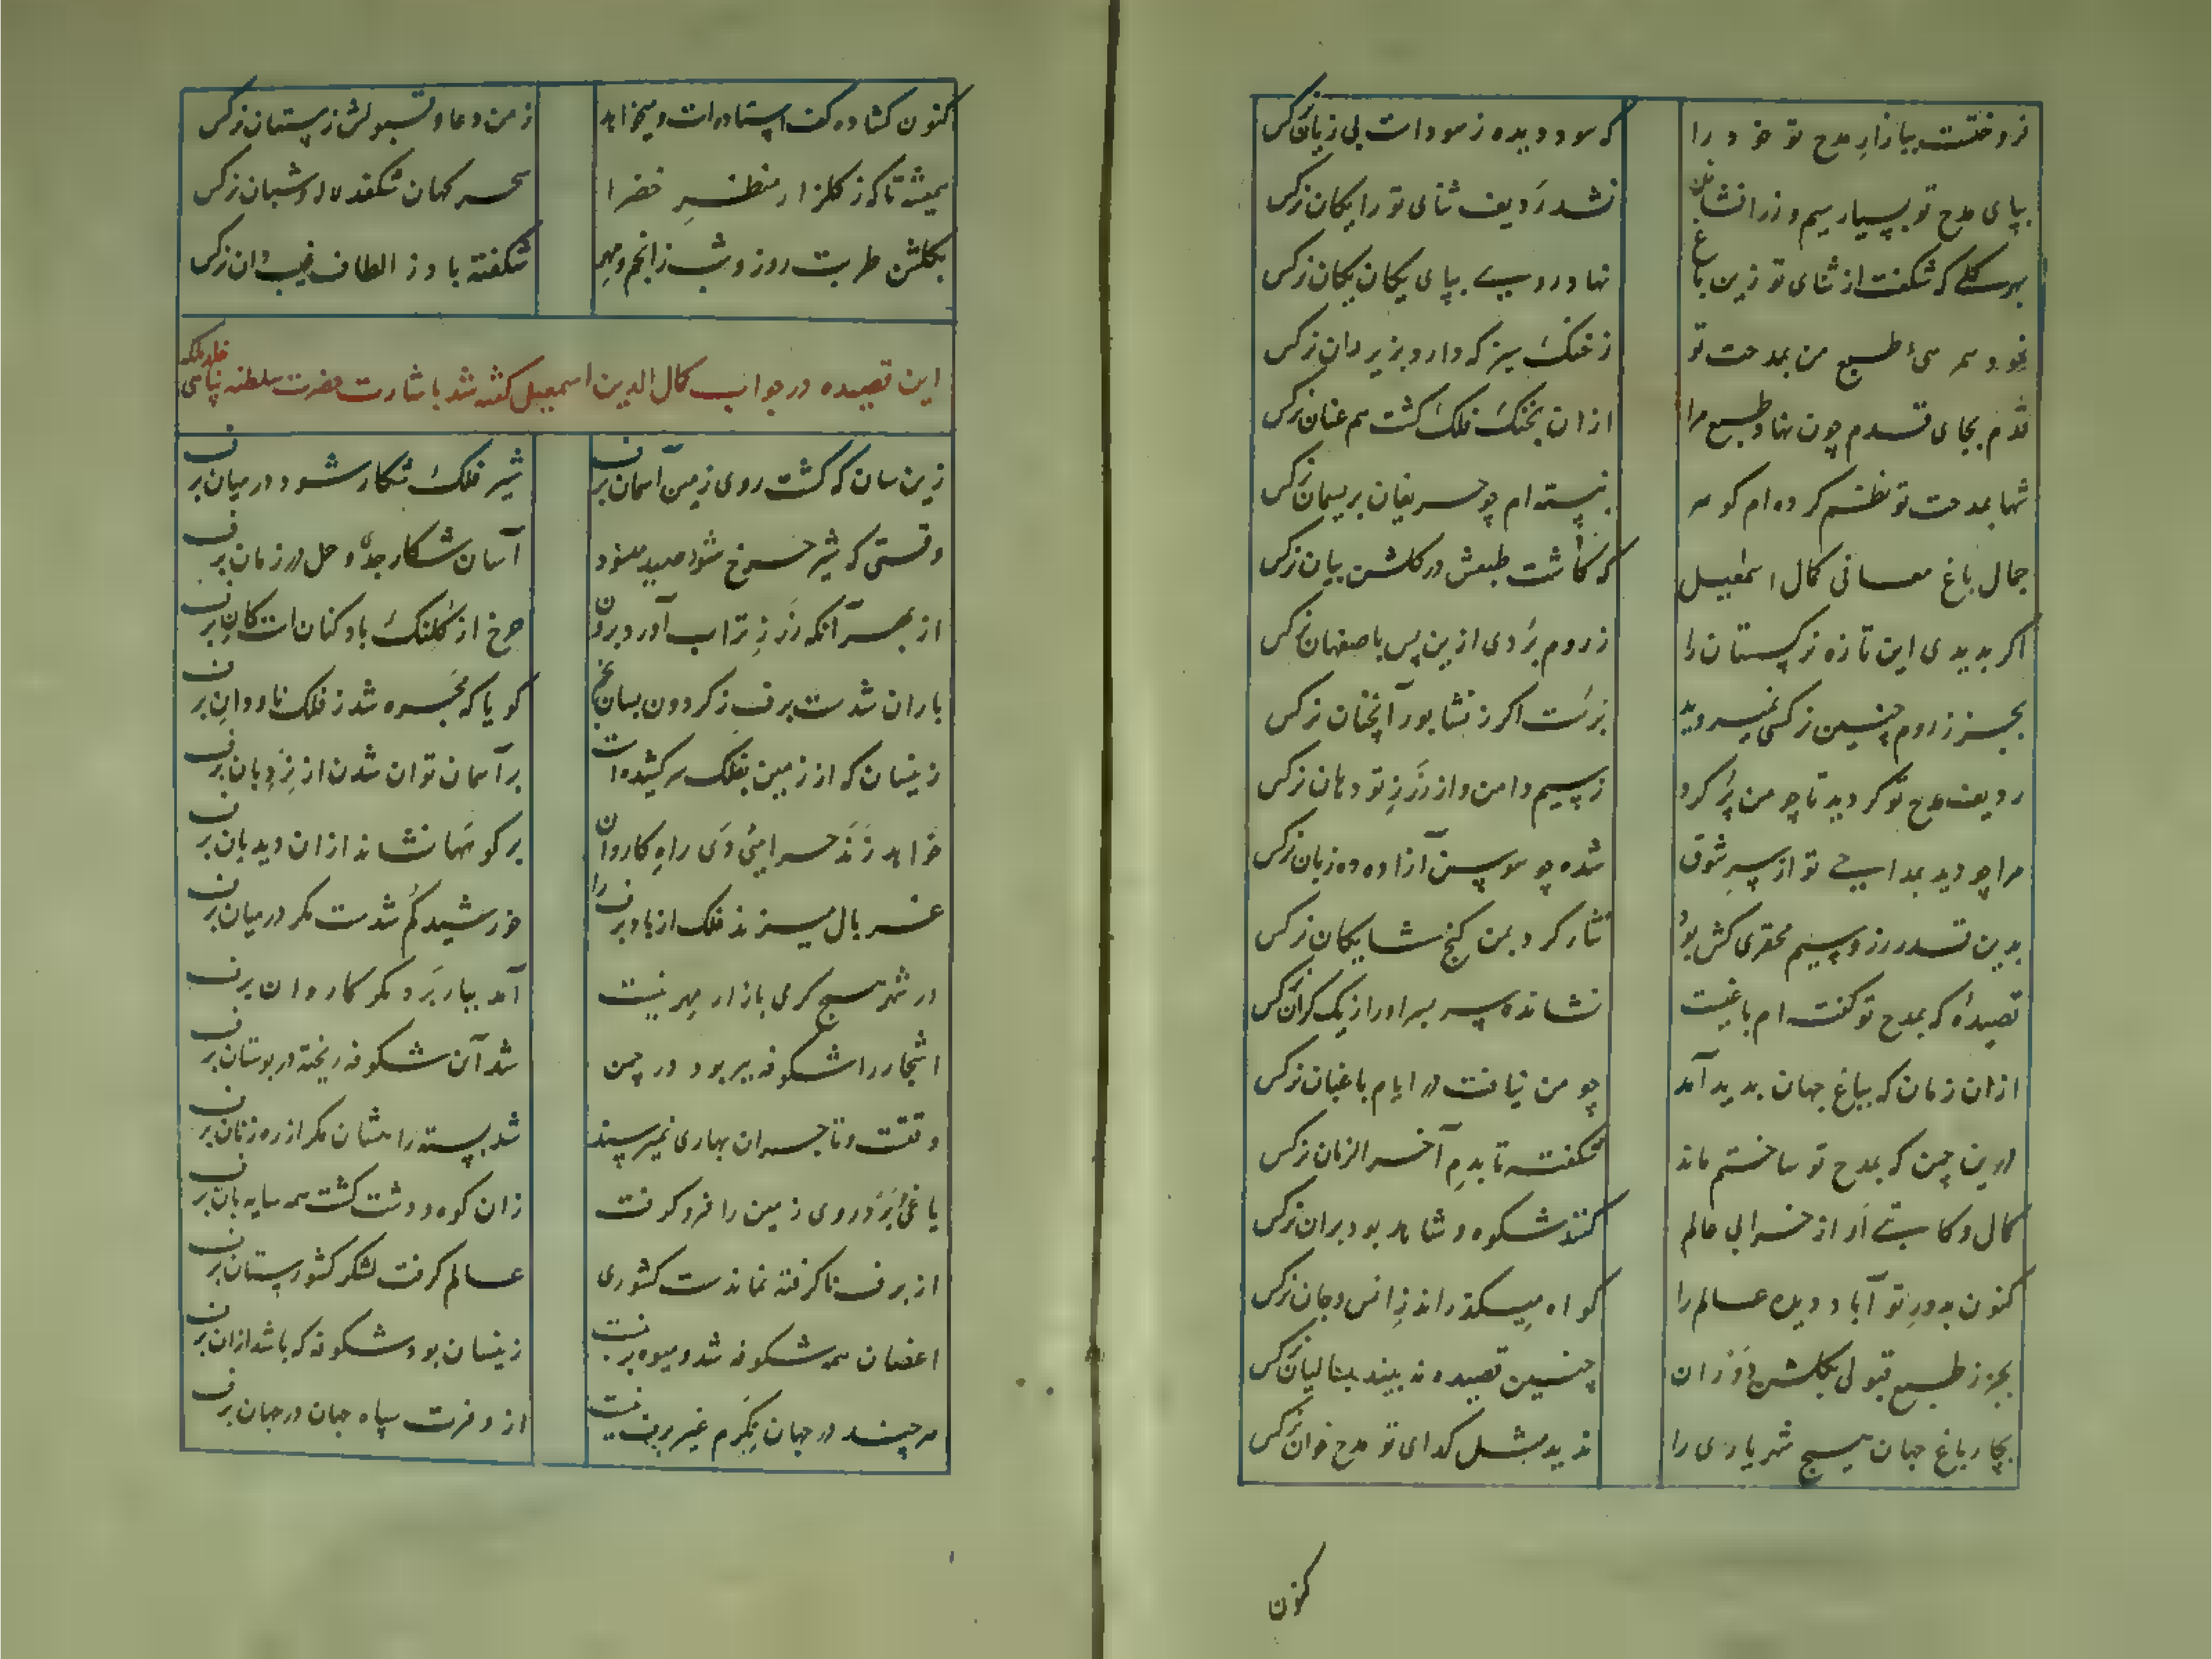 فروختست ببازار مدح تو خود را
که سود دیده ز سودات بی زیان نرکس
بپای مدح تو بسیار سیم و زر افشاند
نشد ردیف ثنای تو رایکان نرکس
بهر کلی که شکفت از ثنای تو زین باغ
نهاد روی بپای یکان یکان نرکس
نمود همرهیء طبع من بمدحت تو
ز خنک سبز که دارد بزیر ران نرکس
قدم بجای قدم چون نهاد طبع مرا
ازان بخنک فلک کشت هم عنان نرکس
شها بمدحت تو نظم کرده ام کوهر
نبسته ام چو حریفان بریسمان نرکس
جمال باغ معانی کمال اسمعیل
که کاشت طبعش در کلشن بیان نرکس
اکر بدیدی این تازه نرکستان را
ز روم بردی ازین پس باصفهان نرکس
بجز ز روم چنین نرکسی نمیروید
نرست اکر ز نشابور آنچنان نرکس
ردیف مدح تو کردید تا چو من پر کرد
ز سیم دامن و از زر تو دهان نرکس
مرا چو دید بمداحی تو از سر شوق
شده چو سوسن آزاده ده زبان نرکس
بدین قدر زر و سیم محقری کش بود
نثار کرد بمن کنج شایکان نرکس
قصیدهٔ که بمدح تو کفته ام باغیست
نشانده سربسر او را از یک کران نرکس
ازان زمان که بباغ جهان بدید آمد
چو من نیافت در ایام باغبان نرکس
درین چمن که بمدح تو ساختم ماند
شکفته تا بدم آخر الزمان نرکس
کمال و کاتبی ار از خرابی عالم
کنند شکوه و شاهد بود بران نرکس
کنون بدور تو آباد دیده عالم را
کواه میکذراند ز انس و جان نرکس
بجز ز طبع قبولی بکلشن دوران
چنین قصیده نه بیند بسالیان نرکس
بچار باغ جهان هیچ شهریاری را
ندید مثل کدای تو مدح خوان نرکس
کنون
کنون کشاده کف استاده است و میخواهد
ز من دعا و قبولش ز بستان نرکس
همیشه تا که ز کلزار منظر خضرا
سحر کهان شکفد لاله و شبان نرکس
بکلشن طربت روز و شب ز انجم و مهر
شکفته باد ز الطاف غیب دان نرکس
این قصیده در جواب کمال الدین اسمعیل کفته شد باشارت حضرت سلطنه پناهی خلد ملکه
زین سان که کشت روی زمین آسمان برف
شیر فلک شکار شود در میان برف
وقتی که شیر چرخ شود صید میشود
آسان شکار جدی و حمل در زمان برف
از بهر آنکه زر ز تراب آورد برون
چرخ از کلنک باد کنان است کان برف
باران شدست برف ز کردون بسان یخ
کویا که مجسره شد ز فلک ناودان برف
زینسان که از زمین بفلک سر کشیده است
بر آسمان توان شدن از نردبان برف
خواهد زند حرامیٔ دی راه کاروان
بر کوهها نشاند ازان دیدبان برف
غربال میزند فلک از باد برف را
خورشید کم شدست مکر در میان برف
در شهر هیچ کرمی بازار مهر نیست
آمد ببار برد مکر کاروان برف
اشجار را شکوفه ببر بود در چمن
شد آن شکوفه ریخته در بوستان برف
وقتست و تاجران بهاری نمیرسند
شد بسته راهشان مکر از رهزنان برف
یاغیٔ برد روی زمین را فرو کرفت
زان کوه و دشت کشت همه سایه بان برف
از برف ناکرفته نماندست کشوری
عالم کرفت لشکر کشورستان برف
اغصان همه شکوفه شد و میوه برف نیست
زینسان بود شکوفه که باشد ازان برف
هر چند در جهان نکرم غیر برف نیست
از وفرت سپاه جهان در جهان برف